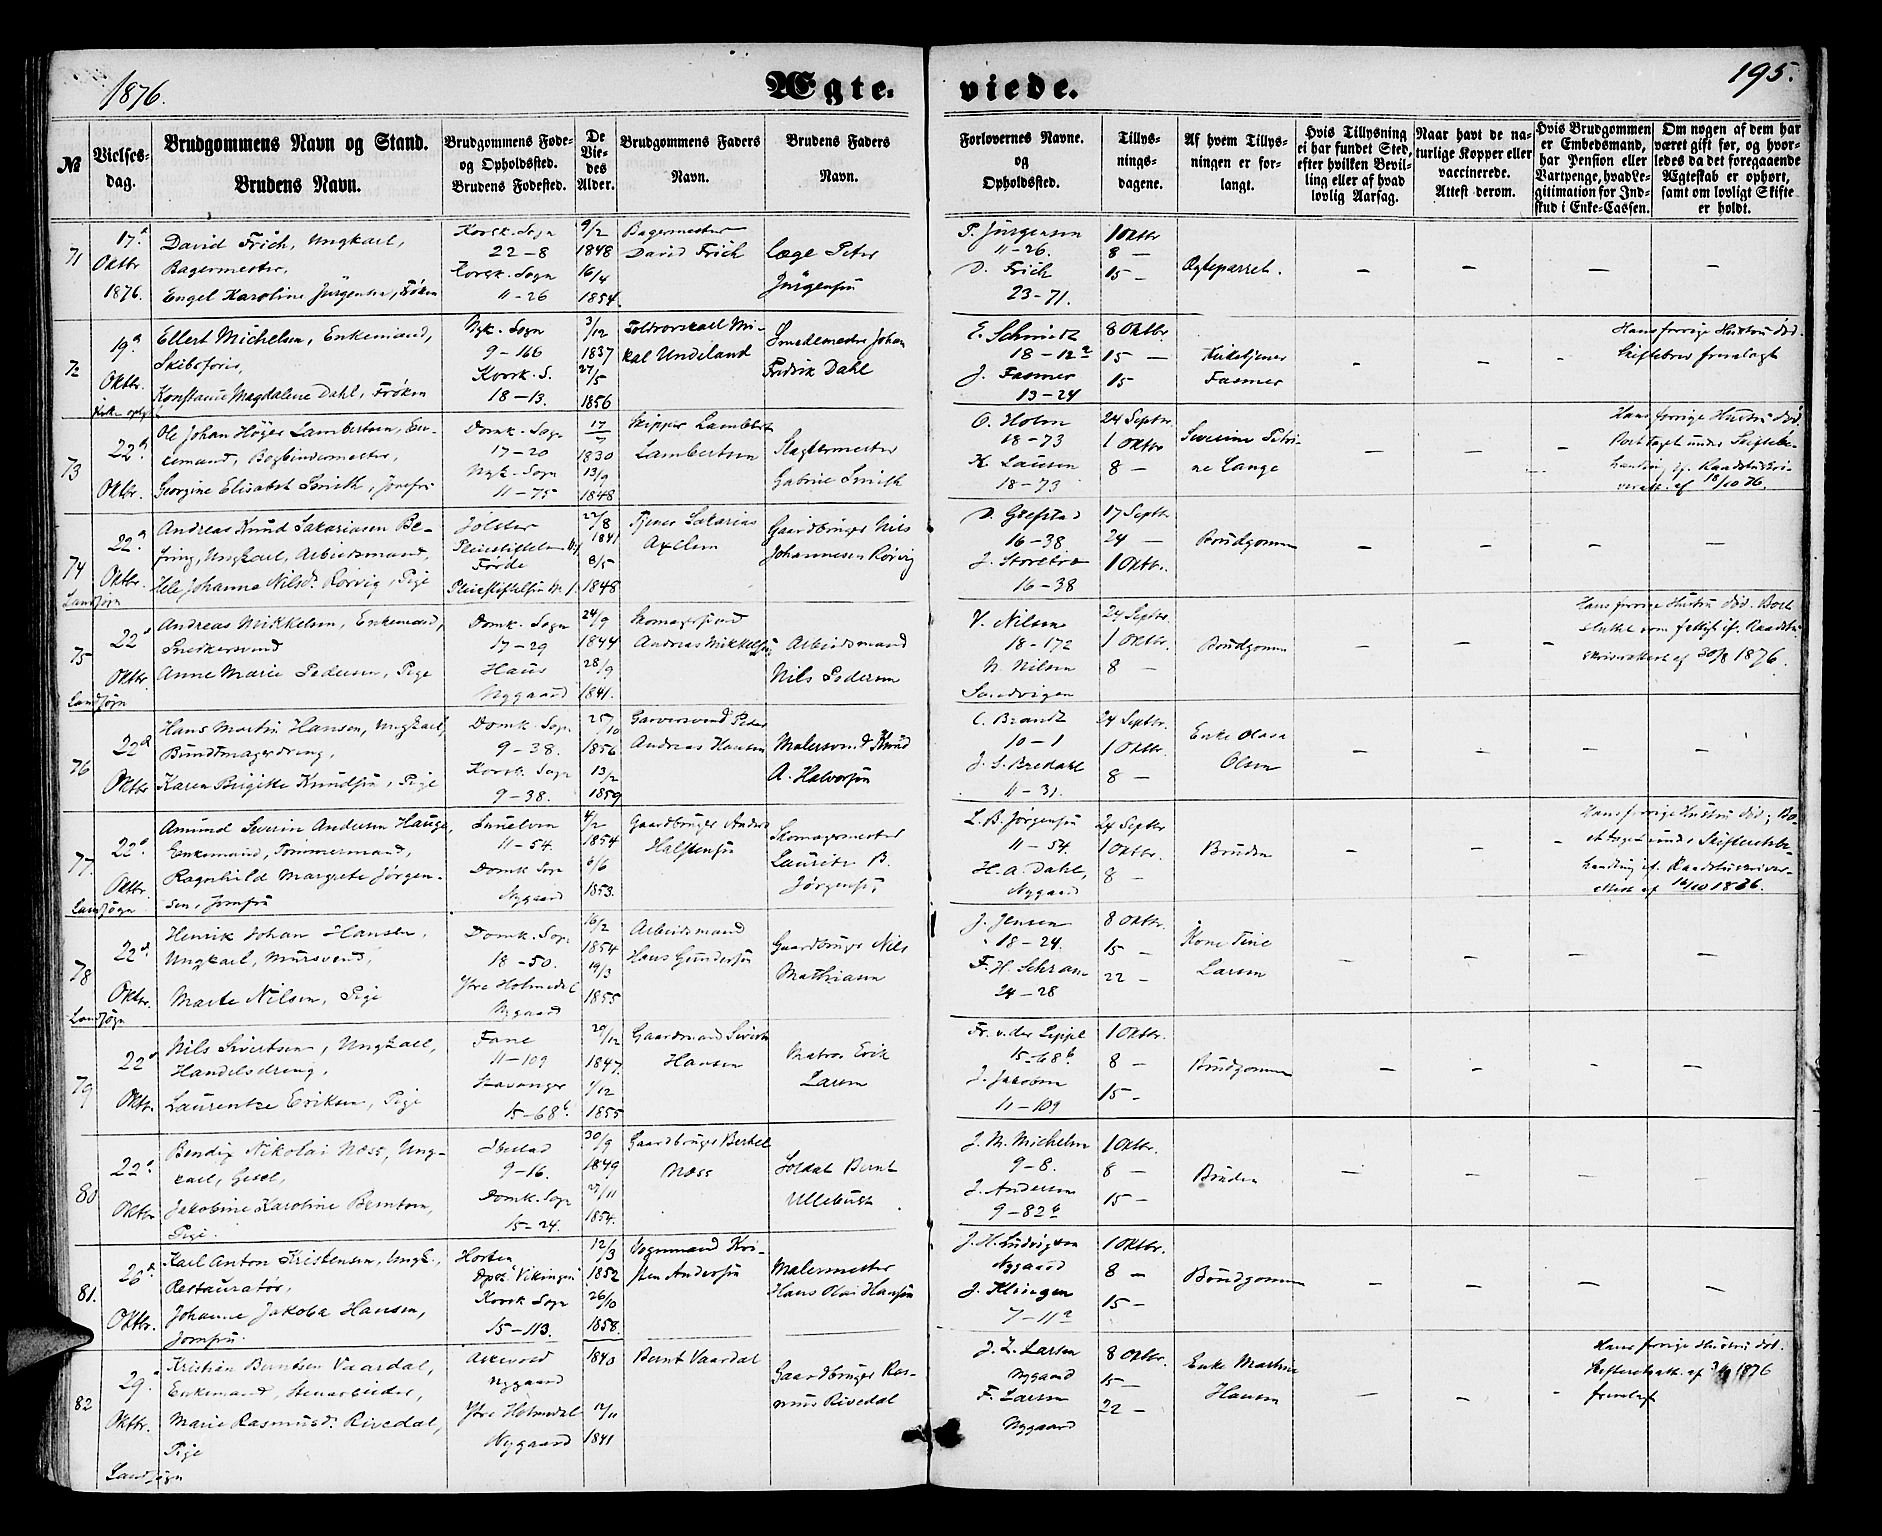 1876.
Ægte-
viede.
195.
№
Vielses-
dag.
Brudgommens Navn og Stand.
Brudens Navn.
Brudgommens Føde-
og Opholdssted.
Brudens Fødested.
De
Vie-
des
Alder.
Brudgommens Faders
Navn.
Brudens Faders
Navn.
Forlovernes Navne.
og
Opholdssted.
Tillys-
nings-
dagene.
Af hvem Tillys-
ningen er for-
langt.
Hvis Tillysning
ei har fundet Sted,
efter hvilken Bevil-
ling eller af hvad
lovlig Aarsag.
Naar havt de na-
turlige Kopper eller
vaccinerede.
Attest derom.
Hvis Brudgommen
er Embedsmand,
har Pension eller
Vartpenge, hvad Le-
gitimation for Ind-
skud i Enke-Cassen.
Om nogen af dem har
været gift før, og hvor-
ledes da det foregaaende
Ægteskab er ophørt,
samt om lovligt Skifte
er holdt.
71
17de
Oktbr
1876.
David Frich, Ungkael,
Bagermester,
Engel Karoline Jürgensen, Frøken
Korsk. Sogn
22-8
Korsk. Sogn
11-26
9/2
1848
16/4
1854.
Bagermester
David Frich
Læge Peter
Jürgensen
P. Jürgensen
11-26.
D. Frich
23-71.
1 Oktbr
8 —
15 —
Ægteparret.
—
—
—
—
72
19de
Oktbr.
Ellert Michelsen, Enkemand,
Skibsfører,
Konstance Magdalene Dahl, Frøken
Nyk. Sogn
9-166
Korsk. S.
18-13.
3/12
1837
27/5
1856
Toldrorskael Mi-
kal Undeland
Smedemester Johan
Fredrik Dahl
E. Schmidt
18-12a
J. Fasmer
13-24
8 Oktbr.
15 —
15
Kirketjener
Fasmer
—
—
—
Hans forrige Hustru død.
Skiftebrev fremlagt
73
22de
Oktbr.
Ole Johan Höyer Lambertsen, En-
kemand, Bogbindermester,
Georgine Elisabet Smith, Jomfru
Domk. Sogn
17-20
Nyk. Sogn
11-75
17/7
1830
13/9
1848
Skipper Lambert
Lambertsen
Slagtermester
Gabriel Smith
O. Holm
18-73
K. Lausen
18-73
24 Septbr.
1 Oktbr
8 —
Severine Petri-
ne Lange
—
—
—
Hans forrige Hustru død.
Boet taget under Skiftebe-
handling cf. Raadstueskri-
veratt. af 18/10 76.
74
22de
Oktbr.
Landsogn
Andreas Knud Sakariasen Be-
fring, Ungkael, Arbeidsmand,
Hele Johanna Nilsdr. Rørvig, Pige
Jølster
Førde
22/8
1841
8/5
1848
Tjener Sakarias
Axelsen
Gaardbruger Nils
Johannesen Rørvig
D. Grefstad
16-38
J. Storetvo
16-38
17 Septbr
24 —
1 Oktbr.
Brudgommen
—
—
—
—
75
22de
Oktbr.
Landsogn
Andreas Mikkelsen, Enkemand,
Snekkersvend
Anne Marie Pedersen, Pige
Domk. Sogn
17-29
Haus
Nygaard
24/9
1844
28/9
1841.
Skomagersvend
Andreas Mikkelsen
Arbeidsmand
Nils Pedersen
V. Nilsen
18-172
N. Nilsen
Sandvigen
24 Septbr.
1 Oktbr.
8 —
Brudgommen
—
—
—
Hans forrige Hustru død. Boet
sluttet som fattigt cf. Raadstu-
skriverattest af 30/8 1876.
76
22de
Oktbr
Hans Martin Hansen, Ungkael,
Bundtmagerdreng,
Karen Birgitte Knudsen, Pige
Domk. Sogn
9-38.
Korsk. Sogn
9-38.
25/10
1856
13/2
1859
Garversvend Peder
Andreas Hansen
Malersvend Knud
A. Halvorsen
C. Brandt
10-1
J. S. Bredahl
11-31.
24 Septbr.
1 Oktbr.
8 —
Enke Olava
Olsen
—
—
—
—
77.
22de
Oktbr
Landsogn
Amund Severin Andersen Hauge,
Enkemand, Tømmermand,
Ragnhild Margrete Jørgen-
sen, Jomfru
11-54
Domk. Sogn
Nygaard
4/2
1854
6/6
1853.
Gaardbruger Anders
Halstensen
Skomagermester
Lauritz B.
Jørgensen
L. B. Jørgensen
11-54.
H. A. Dahl,
Nygaard
24 Septbr
1 Oktbr.
8 —
Bruden
—
—
—
Hans forrige Hustru død; Bo-
et taget under Skifteretsbe-
handling cf. Raadstueskriver-
attest af 16/10 1876.
78
22de
Oktbr.
Landsogn
Henrik Johan Hansen,
Ungkael, Mursvend,
Marte Nilsen, Pige
Domk. Sogn
18-50.
Ytre Holmedal
Nygaard
16/2
1854
19/3
1855
Arbeidsmand
Hans Gundersen
Gaardbruger Nils
Mathiasen
J. Jensen
18-24.
F. H. Schram
24-28
8 Oktbr.
15 —
22 —
Kone Tine
Larsen
—
—
—
—
79
22de
Oktbr.
Nils Sivertsen, Ungkael,
Handelsdreng,
Laurentze Eriksen, Pige
Fane
11-109
Stavanger
15-68b.
29/12
1847.
1/12
1855
Gaardmand Sivert
Hansen
Matros Erik
Larsen
Fr. v. der Lippe
15-68b
J. Jakobsen
11-109
1 Oktbr.
8 —
15 —
Brudgommen
—
—
—
—
80
22de
Oktbr
Bendix Nikolai Næss, Ung-
kael, Gesel,
Jakobine Karoline Berntsen,
Pige.
Ibestad
9-16.
Domk. Sogn
15-24.
30/9
1849
27/11
1854.
Gaardbruger Bertel
Næss
Soldat Bernt
Ullebust
J. M. Michelsen
9-8.
J. Andersen
9-82b
1 Oktbr.
8 —
15 —
Bruden
—
—
—
—
81.
26de
Oktbr.
Karl Anton Kristensen, Ungk.,
Restauratør,
Johanne Jakoba Hansen,
Jomfru.
Horten
Dpsk. "Vikingen"
Korsk. Sogn
15-113.
12/3
1852
26/10
1858.
Vognmand Kri-
sten Andersen
Malermester
Hans Olai Hansen
J. H. Ludvigsen
Nygaard
J. Klingen
7-11a
1 Oktbr.
8 —
15 —
Brudgommen
—
—
—
—
82
29de
Oktbr.
Landsogn
Kristian Berntsen Vaardal,
Enkemand, Stenarbeider,
Marie Rasmusdr. Rivedal,
Pige
Askevold
Nygaard
Ytre Holmedal
Nygaard
1840
12/11
1841
Bernt Vaardal
Gaardbruger Ras-
mus Rivedal
J. L. Larsen
Nygaard
F. Larsen
Nygaard
8 Oktbr.
15 —
22 —
Enke Martine
Hansen
—
—
—
Hans forrige Hustru død.
Skifteretsatt. af 1876
fremlagt